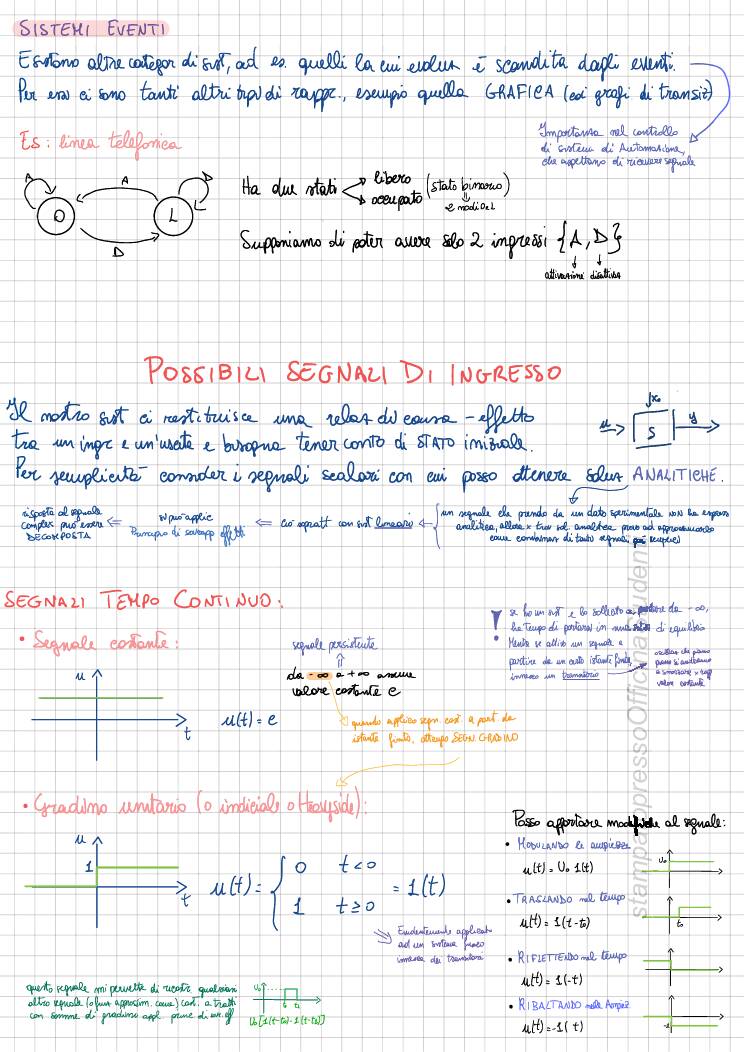 SISTEMI EVENTI
Esistono altre categor di sist, ad es. quelli la cui evoluz è scandita dagli eventi.
Per essi ci sono tanti altri tipi di rappr., esempio quella GRAFICA (coi grafi di transiz)
Importanza nel controllo
di sistemi di Automazione,
che aspettano di ricevere segnale
Es: linea telefonica
A
A
D
O
L
D
Ha due stati
libero
occupato
(stato binario)
2 nodi O e L
Supponiamo di poter avere solo 2 ingressi {A, D}
attivazione disattivaz
POSSIBILI SEGNALI DI INGRESSO
Il nostro sist ci restituisce una relaz di causa-effetto
tra un ingr e un'uscita e bisogna tener conto di STATO iniziale.
Per semplicità consider i segnali scalari con cui posso ottenere soluz ANALITICHE.
x0
u
S
y
un segnale che prendo da un dato sperimentale non ha espress
analitica, allora x trov sol. analitica provo ad approssimarlo
come combinaz di tanti segnali più semplici
Ciò sopratt con sist lineari
si può applic
Principio di sovrapp effetti
risposta al segnale
comples può essere
DECOMPOSTA
SEGNALI TEMPO CONTINUO:
• Segnale costante:
u
t
u(t) = c
segnale persistente
da -∞ a +∞ assume
valore costante c
quando applico segn. cost a part. da
istante finito, ottengo SEGN. GRADINO
! se ho un sist e lo sollecito a partire da -∞,
ha tempo di portarsi in una di equilibrio
Mentre se attivo un segnale a
partire da un certo istante finito,
innesco un transitorio
oscillaz che piano
piano si andranno
a smorzare x ragg
valore costante
• Gradino unitario (o indiciale o Heavyside):
u
1
t
u(t) = { 0 t<0
1 t≥0
= 1(t)
Evidentemente applicato
ad un sistema fisico
innesca dei transitori
Posso apportare modifiche al segnale:
• MODULANDO le ampiezze
u(t) = U0 1(t)
U0
• TRASLANDO nel tempo
u(t) = 1(t-t0)
t0
• RIFLETTENDO nel tempo
u(t) = 1(-t)
• RIBALTANDO nelle Ampiez
u(t) = -1(t)
-1
questo segnale mi permette di ricostr qualsiasi
altro segnale (o fun approssim. come) cost. a tratti
con somme di gradino appl. princ di sovr. eff
U0
t0 t1
U0[1(t-t0)-1(t-t1)]
stampatopressoOfficinaStudenti